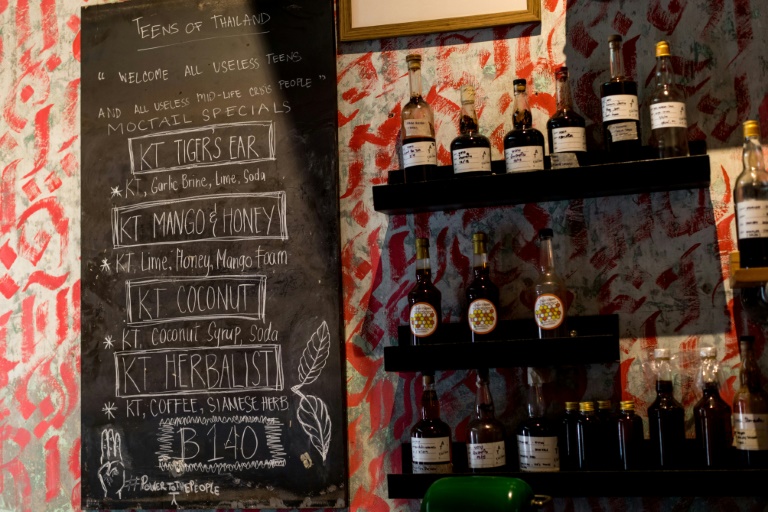 TEENS OF THAILAND
" WELCOME ALL USELESS TEENS
AND ALL USELESS MID-LIFE CRISIS PEOPLE "
MOCTAIL SPECIALS
KT TIGERS EAR
* KT, Garlic Brine, Lime, Soda
KT MANGO & HONEY
* KT, Lime, Honey, Mango Foam
KT COCONUT
* KT, Coconut Syrup, Soda
KT HERBALIST
* KT, COFFEE, SIAMESE HERB
B 140
#POWERTOTHEPEOPLE